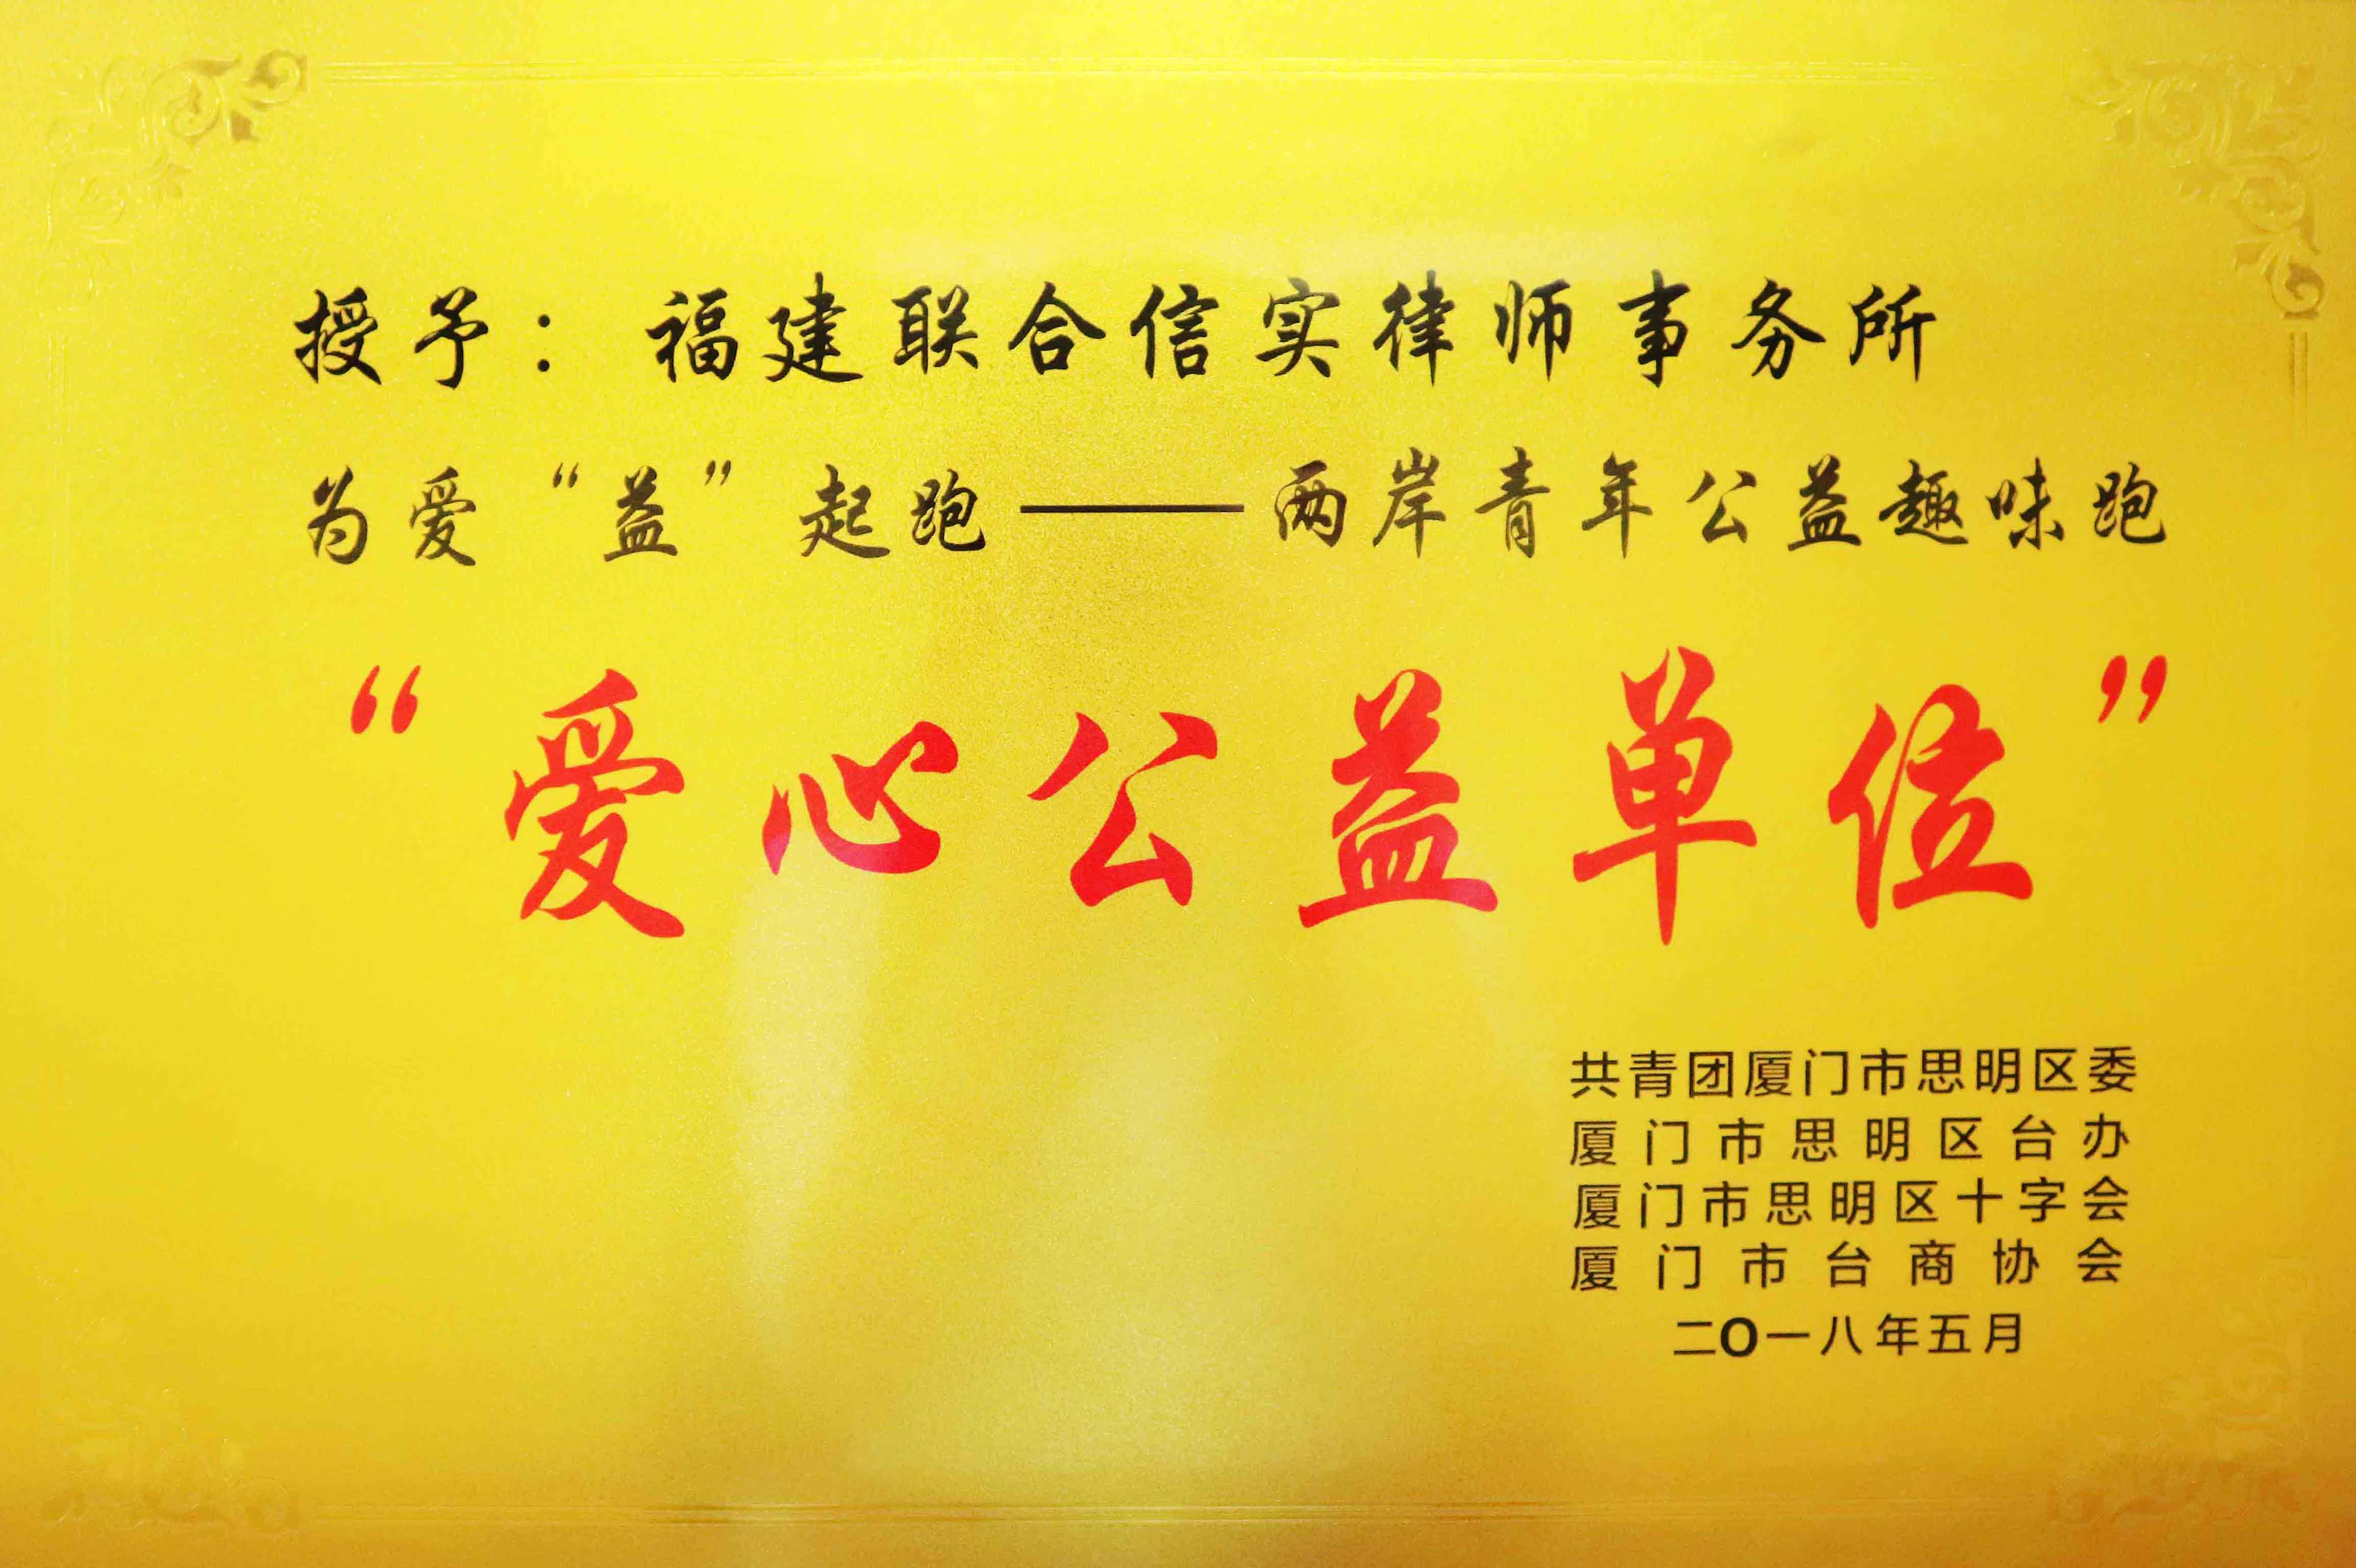 授予：福建联合信实律师事务所
为爱“益”起跑——两岸青年公益趣味跑
“爱心公益单位”
共青团厦门市思明区委
厦门市思明区台办
厦门市思明区十字会
厦门市台商协会
二O一八年五月